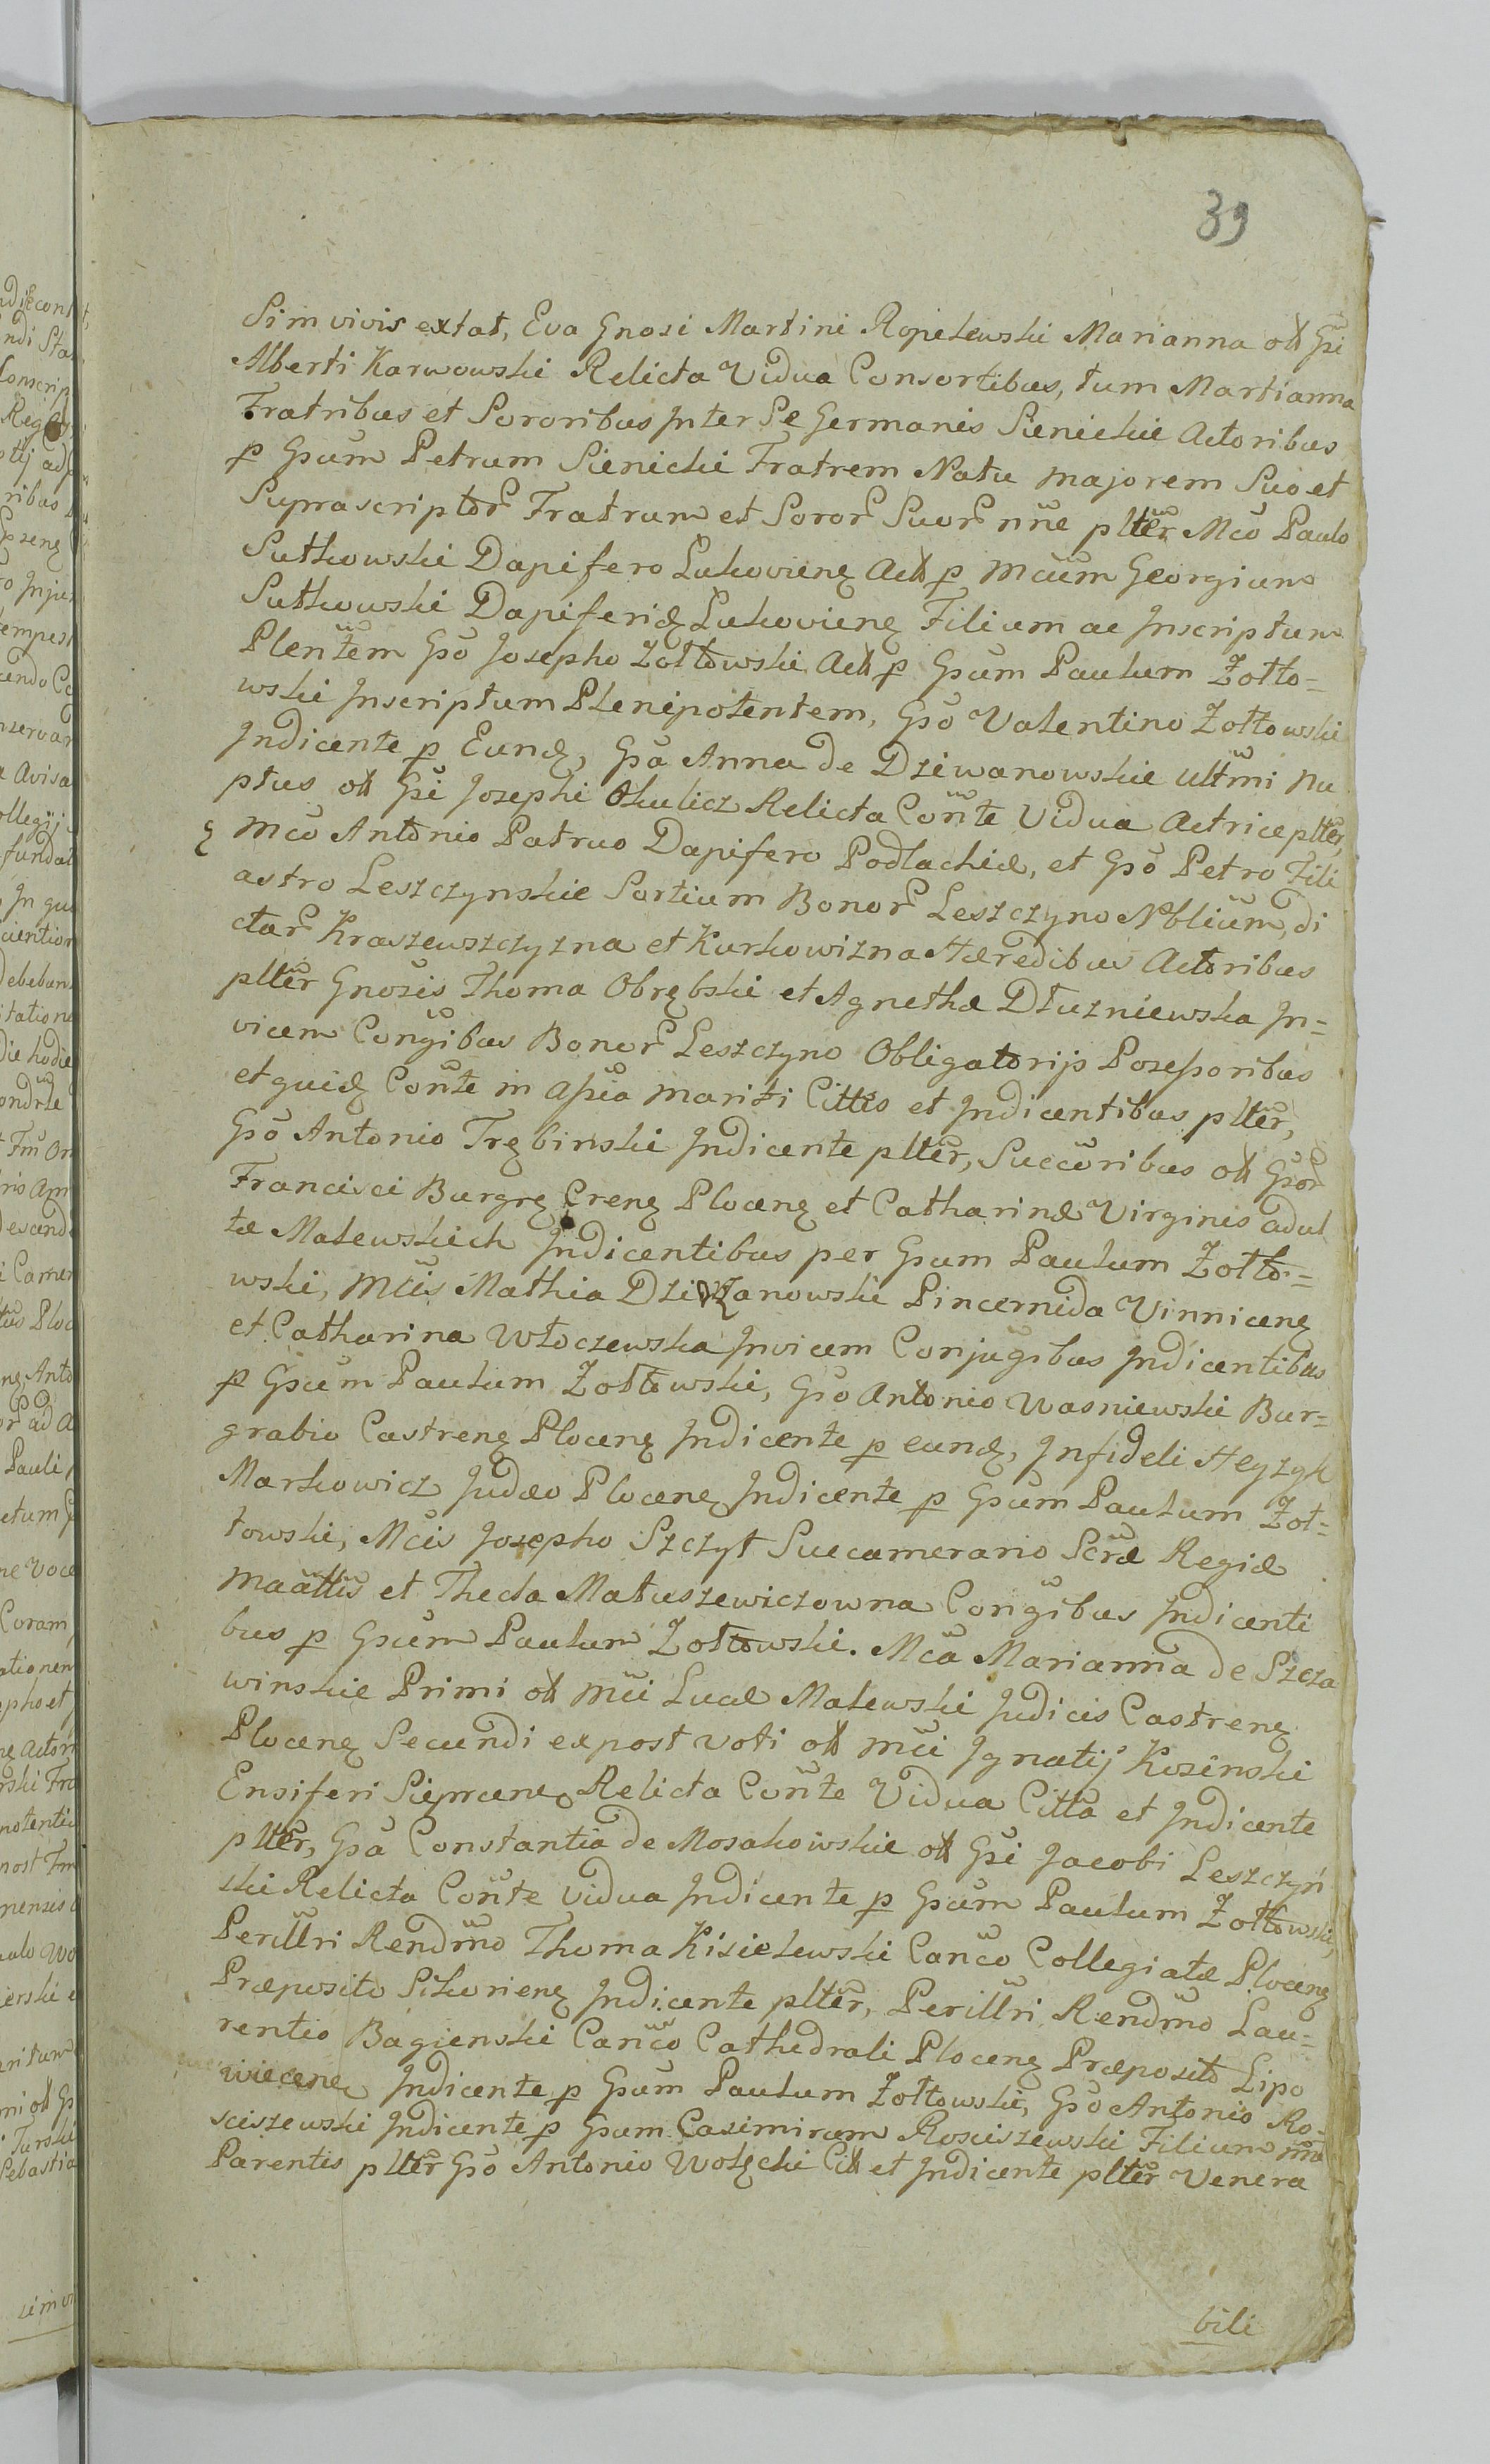 39
Simvivis extat, Eva Gnosi Martini Ropelewski Marianna olł Gsi
Alberti Karwowski Relicta Vidua Consortibus, tum Martianna
Fratribus et Sororibus Inter Se Germanis Sienickie Actoribus
p Gsum Petrum Sienicki Fratrem Natu majorem Suo et
Suprascriptor Fratrum et Soror Suor nne plter Mco Paulo
Sutkowski Dapifero Łukovienę Actt p Mcum Georgium
Sutkowski Dapiferidę Łukovienę Filium ac Inscriptum
Plentem Gso Josepho Zołtowski Actt p Gsum Paulum Zołto=
wski Inscriptum Plenipotentem, Gso Valentino Zołtowski
Indicente p Eundę, Gsa Anna de Dziwanowskie ultmi nu
ptus olł Gsi Josephi Okulicz Relicta Conte Vidua Actrice plter,
Mco Antonio Patruo Dapifero Podlachiæ, et Gso Petro Fili
astro Leszczynskie Sortium Bonor Leszczyno Nblium, di
ctar Kraszewszczyzna et Kurkowizna Hæredibus Actoribus
plter Gnosis Thoma Obrębski et Agnetha Dłuzniewska In=
vicem Congibus Bonor Leszczyno Obligatorijs Poseßoribus
et quidę Conte in aßia mariti Cittis et Indicentibus plter,
Gso Antonio Trębinski Indicente plter, Succoribus olł Gsor
Francisci Burgrę Crenę Plocenę et Catharinæ Virginis adul
tæ Malewskich Indicentibus per Gsum Paulum Zołto=
wski, Mcis Mathia Dziwanowski Pincernida Vinnicenę
et Catharina Włoczewska Invicem Conjugibus Indicentibus
p Gsum Paulum Zołtowski, Gso Antonio Wasniewski Bur=
grabio Castrenę Plocenę Indicente p eundę, Infideli Heyzyk
Markowicz Judæo Plocenę Indicente p Gsum Paulum Zoł=
towski, Mcis Josepho Szczyt Succamerario Scræ Regiæ
Maattis et Thecla Matuszewiczowna Congibus Indicenti
bus p Gsum Paulum Zołtowski. Mca Marianna de Szcza
winskie Primi olł Mci Lucæ Malewski Judicis Castrenę
Plocenę Secundi expost voti olł Mci Ignatij Kosinski
Ensiferi Sieprcenę Relicta Conte Vidua Citta et Indicente
plter, Gsa Constantia de Mosakowskie olł Gsi Jacobi Leszczyń
ski Relicta Conte vidua Indicente p Gsum Paulum Zołtowski,
Perillri Rendmo Thoma Kisielewski Canco Collegiatæ Plocenę
Præposito Sikorienę Indicente plter, Perillri Rendmo Lau=
rentio Bagienski Canco Cathedrali Plocenę Præposito Lipo
wiecenę Indicente p Gsum Paulum Zołtowski, Gso Antonio Ro=
sciszewski Indicente p Gsum Casimirum Rosciszewski Filium nna
Parentis plter Gso Antonio Wołęcki Citt et Indicente plter Venera
bili